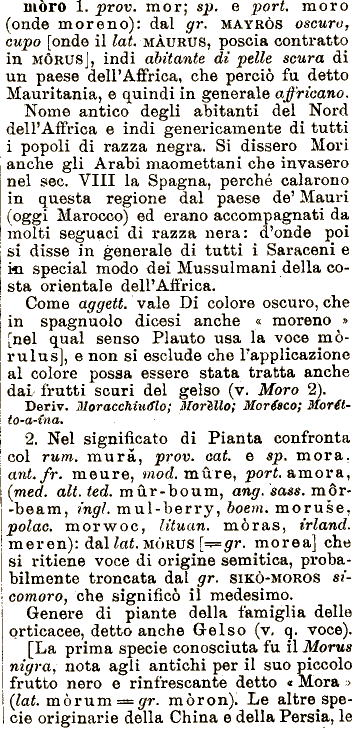 mòro 1. prov. mor; sp. e port. moro
(onde moreno): dal gr. MAYRÒS oscuro,
cupo [onde il lat. MÀURUS, poscia contratto
in MÒRUS], indi abitante di pelle scura di
un paese dell'Affrica, che perciò fu detto
Mauritania, e quindi in generale affricano.
Nome antico degli abitanti del Nord
dell'Affrica e indi genericamente di tutti
i popoli di razza negra. Si dissero Mori
anche gli Arabi maomettani che invasero
nel sec. VIII la Spagna, perché calarono
in questa regione dal paese de' Mauri
(oggi Marocco) ed erano accompagnati da
molti seguaci di razza nera: d'onde poi
si disse in generale di tutti i Saraceni e
in special modo dei Mussulmani della co-
sta orientale dell'Affrica.
Come aggett. vale Di colore oscuro, che
in spagnuolo dicesi anche « moreno »
[nel qual senso Plauto usa la voce mò-
rulus], e non si esclude che l'applicazione
al colore possa essere stata tratta anche
dai frutti scuri del gelso (v. Moro 2).
Deriv. Moracchiuólo; Morèllo; Morésco; Morét-
to-a-ína.
2. Nel significato di Pianta confronta
col rum. mură, prov. cat. e sp. mora,
ant. fr. meure, mod. mûre, port. amora,
(med. alt. ted. mûr-boum, ang. sass. môr-
-beam, ingl. mul-berry, boem. moruše,
polac. morwoc, lituan. mòras, irland.
meren): dal lat. MÒRUS [=gr. morea] che
si ritiene voce di origine semitica, proba-
bilmente troncata dal gr. SIKÒ-MOROS si-
comoro, che significò il medesimo.
Genere di piante della famiglia delle
orticacee, detto anche Gelso (v. q. voce).
[La prima specie conosciuta fu il Morus
nigra, nota agli antichi per il suo piccolo
frutto nero e rinfrescante detto « Mora »
(lat. mòrum = gr. mòron). Le altre spe-
cie originarie della China e della Persia, le